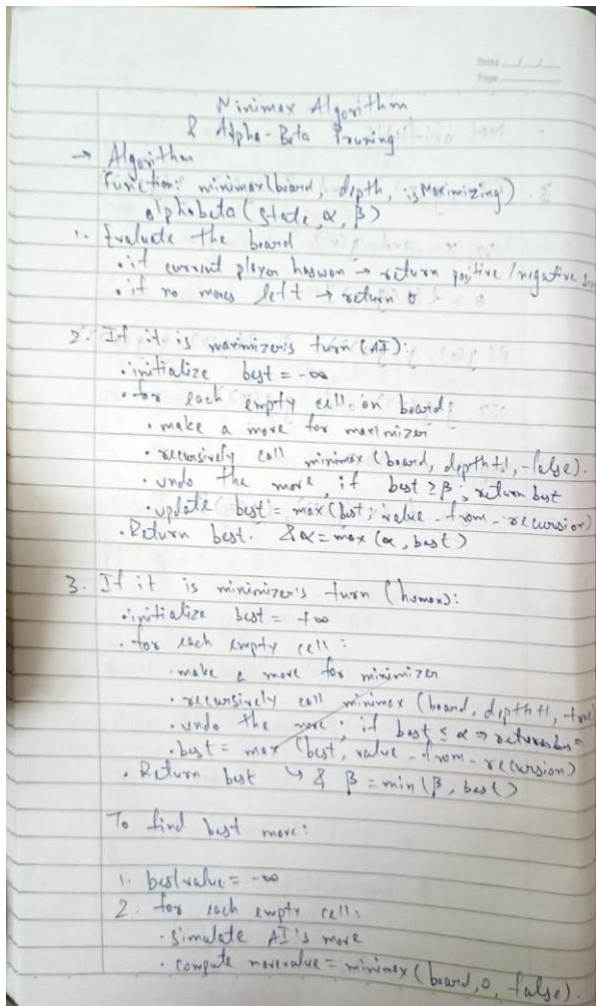 Date
Page
Minimax Algorithm
& Alpha-Beta Pruning
→ Algorithm
Function: minimax(board, depth, isMaximizing)
alphabeta(state, α, β)
1. Evaluate the board
• if current player haswon → return positive/negative
• if no moves left → return 0
2. If it is maximizer's turn (AI):
• initialize best = -∞
• for each empty cell on board:
• make a move for maximizer
• recursively call minimax (board, depth+1, -false).
• undo the move, if best ≥ β; return best
• update best = max(best, value-from-recursion)
• Return best. & α = max (α, best)
3. If it is minimizer's turn (human):
• initialize best = +∞
• for each empty cell:
• make a move for minimizer
• recursively call minimax (board, depth+1, -true
• undo the move; if best ≤ α ⇒ return
• best = max (best, value-from-recursion)
• Return best ↳ & β = min(β, best)
To find best move:
1. bestvalue = -∞
2. for each empty cell:
• simulate AI's move
• compute movevalue = minimax (board, 0, false).